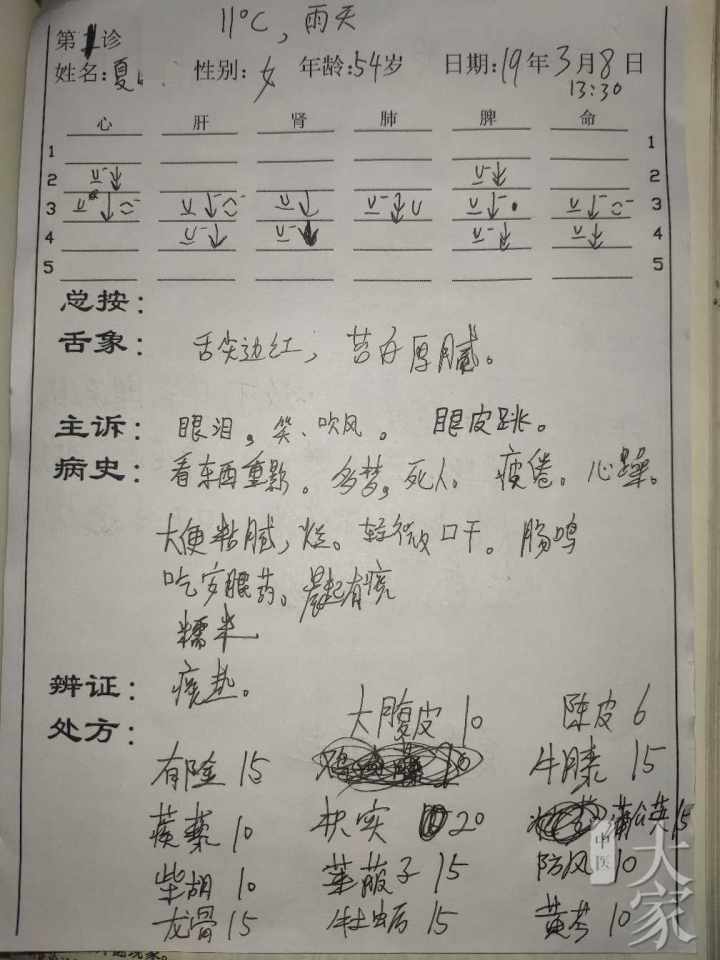 11°C，雨天
第1诊
姓名：夏 性别：女 年龄：54岁 日期：19年3月8日
13:30
心 肝 肾 肺 脾 命
1 1
2 2
3 3
4 4
5 5
总按：
舌象：舌尖边红，苔 厚腻。
主诉：眼泪。笑、吹风。 眼皮跳。
病史：看东西重影。多梦。死人。 疲倦。心躁。
大便粘腻，烂。轻微口干。肠鸣
吃安眠药。晨起有痰
糯米
辨证：痰热。
处方：
大腹皮 10 陈皮 6
15 牛膝 15
10 枳实 20 蒲公英 15
柴胡 10 莱菔子 15 防风 10
龙骨 15 牡蛎 15 黄芩 10
中医
大家